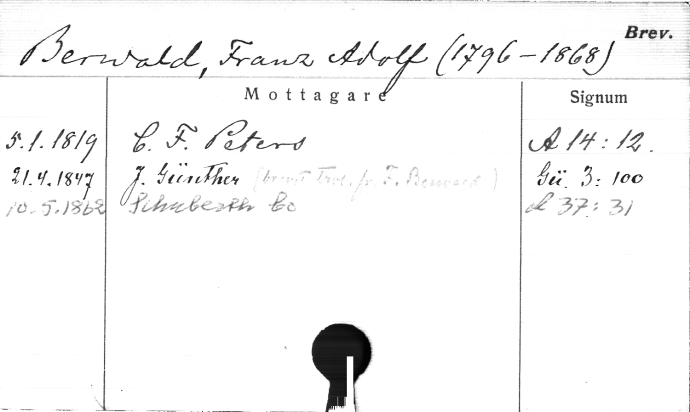 Brev.
Berwald, Franz Adolf (1796-1868)
Mottagare Signum
5.1.1819 C. F. Peters A 14:12.
21.4.1847 J. Günther F. Berwald) Gü 3:100
10.5.1862 Schuberth Co 37:31